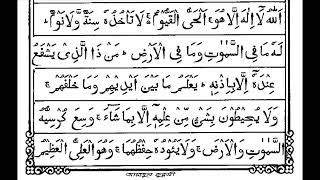 اَللّٰهُ لَآ اِلٰهَ اِلَّا هُوَ ۚ اَلْحَیُّ الْقَیُّوْمُ ۚ لَا تَاْخُذُهٗ سِنَةٌ وَّلَا نَوْمٌ ؕ
لَهٗ مَا فِی السَّمٰوٰتِ وَمَا فِی الْاَرْضِ ؕ مَنْ ذَا الَّذِیْ یَشْفَعُ
عِنْدَهٗٓ اِلَّا بِاِذْنِهٖ ؕ یَعْلَمُ مَا بَیْنَ اَیْدِیْهِمْ وَمَا خَلْفَهُمْ ۚ
وَلَا یُحِیْطُوْنَ بِشَیْءٍ مِّنْ عِلْمِهٖٓ اِلَّا بِمَا شَآءَ ۚ وَسِعَ كُرْسِیُّهُ
السَّمٰوٰتِ وَالْاَرْضَ ۚ وَلَا یَـُٔوْدُهٗ حِفْظُهُمَا ۚ وَهُوَ الْعَلِیُّ الْعَظِیْمُ